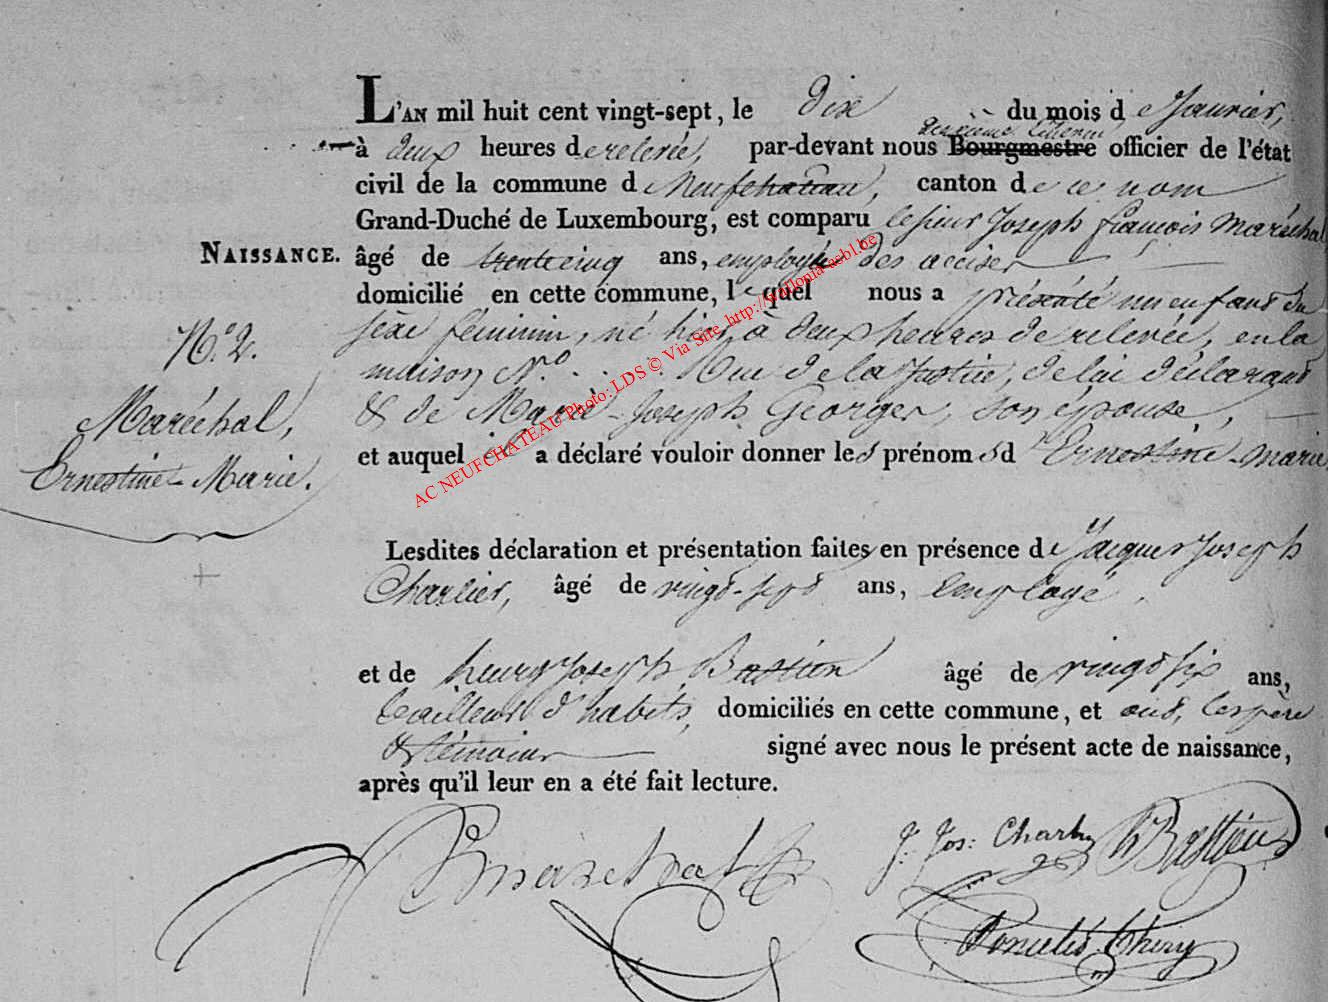 L'AN mil huit cent vingt-sept, le dix du mois de Janvier,
deuxième Echevin
à deux heures de relevée, par-devant nous Bourgmestre officier de l'état
civil de la commune de Neufchateau, canton de ce nom
Grand-Duché de Luxembourg, est comparu le sieur Joseph françois Maréchal
NAISSANCE. âgé de trente cinq ans, employé des accises
domicilié en cette commune, lequel nous a présenté un enfant du
N.º 2. sèxe féminin, né hier, à deux heures de relevée, en la
maison N.º . . . . Rue de la Justice, de lui déclarant
Maréchal, & de Marie-Joseph Georges, son épouse,
et auquel il a déclaré vouloir donner les prénoms d'Ernestine-Marie
Ernestine-Marie.
Lesdites déclaration et présentation faites en présence de Jacques Joseph
Charlier, âgé de vingt-sept ans, Employé,
et de henry Joseph Bastien âgé de vingt six ans,
tailleur d'habits, domiciliés en cette commune, et ont, les père
& témoins signé avec nous le présent acte de naissance,
après qu'il leur en a été fait lecture.
Marechal J: Jos: Charlier h Bastien
Thiry
AC NEUFCHATEAU Photo: LDS © Via Site http://wallonia-asbl.be